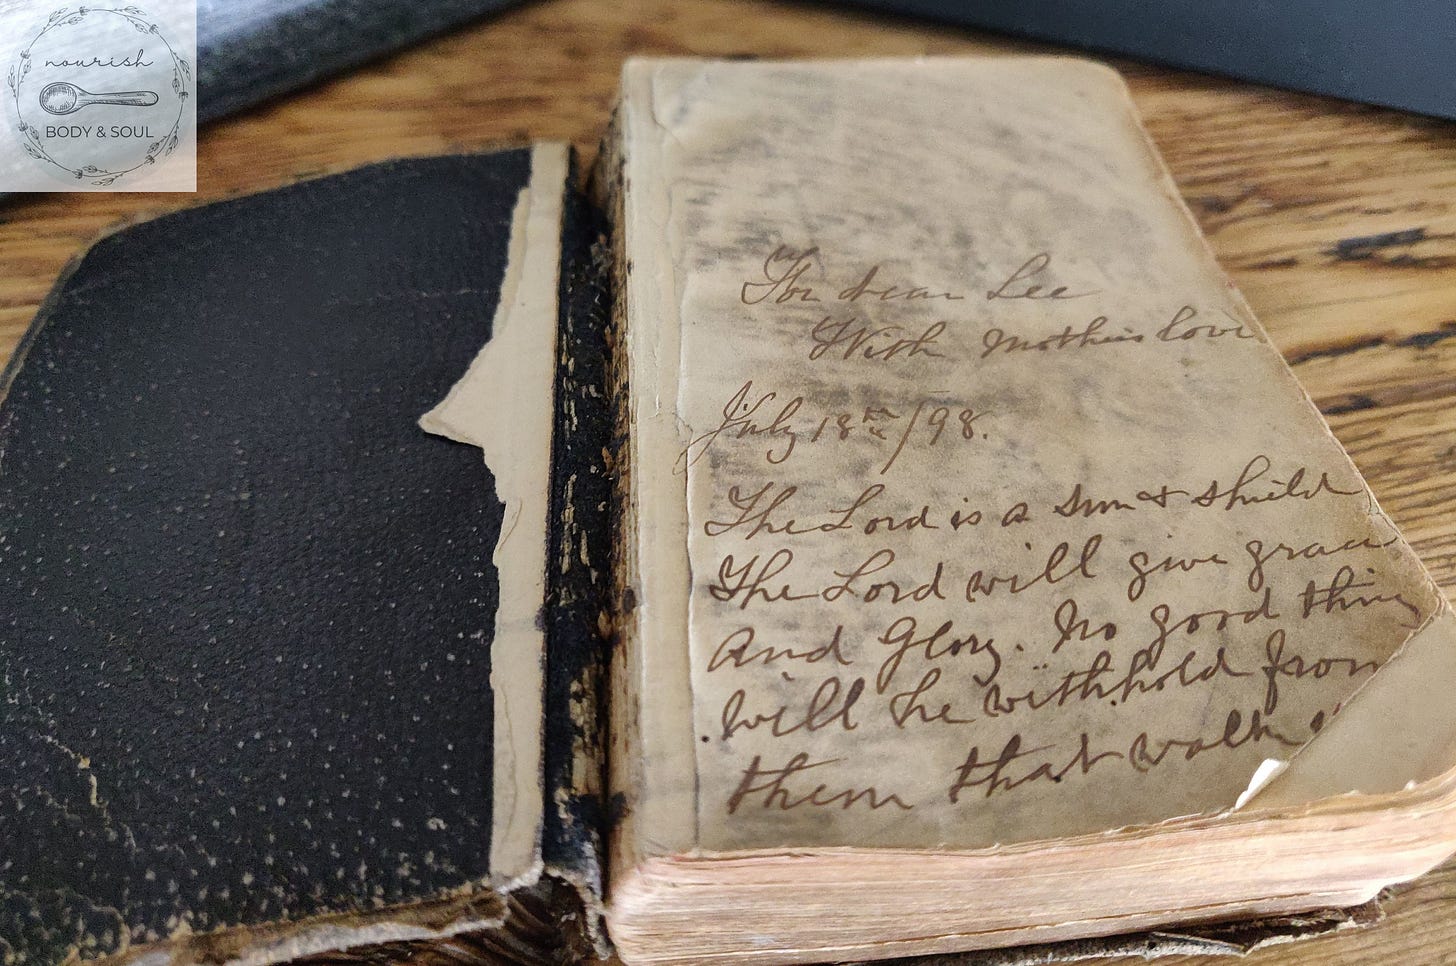 nourish
BODY & SOUL
For dear Lee
With Mothers love
July 18th /98.
The Lord is a Sun & Shield
The Lord will give grace
And Glory. No good thing
will he withhold from
them that walk